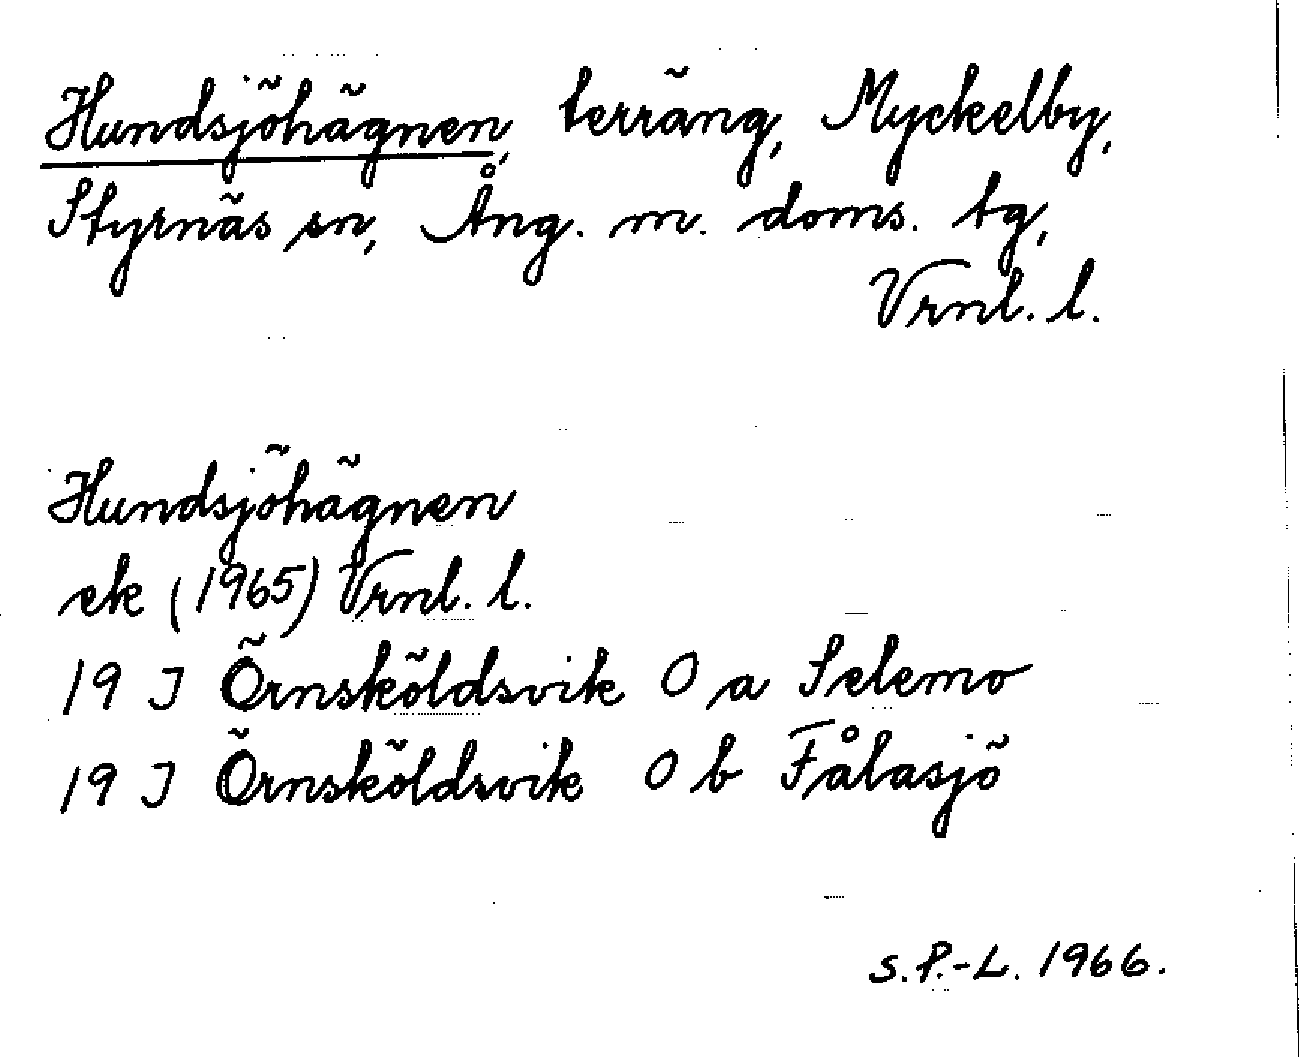 Hundsjöhägnen, terräng, Myckelby,
Styrnäs sn, Ång. m. doms. tg,
Vrnl. l.
Hundsjöhägnen
ek (1965) Vrnl. l.
19 J Örnsköldsvik 0 a Selemo
19 J Örnsköldsvik 0 b Fålasjö
S.P.-L. 1966.